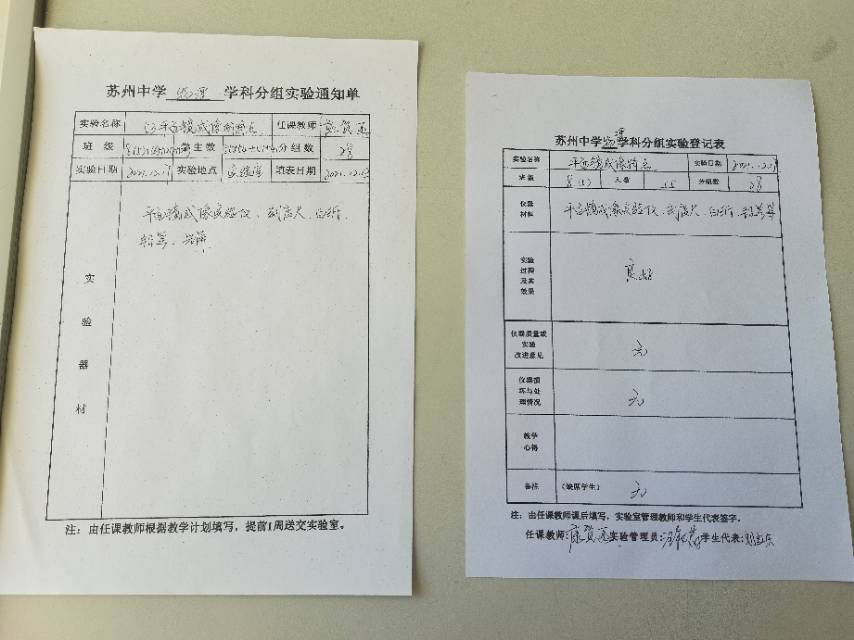 苏州中学 物理 学科分组实验通知单
实验名称 平面镜成像的特点 任课教师
班级 学生数 分组数 28
实验日期 2021.12.17 实验地点 实验室 填表日期
实验器材
平面镜成像实验仪、刻度尺、白纸、
铅笔、光屏
注：由任课教师根据教学计划填写，提前1周送交实验室。
苏州中学 物理 学科分组实验登记表
实验名称 平面镜成像特点 实验日期
班级 人数 分组数 28
仪器材料 平面镜成像实验仪、刻度尺、白纸、铅笔等
实验过程及其效果
仪器质量或实验改进意见 无
仪器损坏与处理情况 无
教学心得
备注 (缺席学生) 无
注：由任课教师课后填写，实验室管理教师和学生代表签字。
任课教师: 实验管理员: 学生代表: